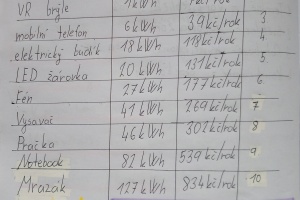 VR brýle 1kWh
mobilní telefon 6kWh 39kč/rok 3
elektrický budík 18kWh 118kč/rok 4
LED žárovka 20kWh 131kč/rok 5
Fén 27kWh 177kč/rok 6
Vysavač 41kWh 269kč/rok 7
Pračka 46kWh 302kč/rok 8
Notebook 82kWh 539kč/rok 9
Mrazák 127kWh 834kč/rok 10